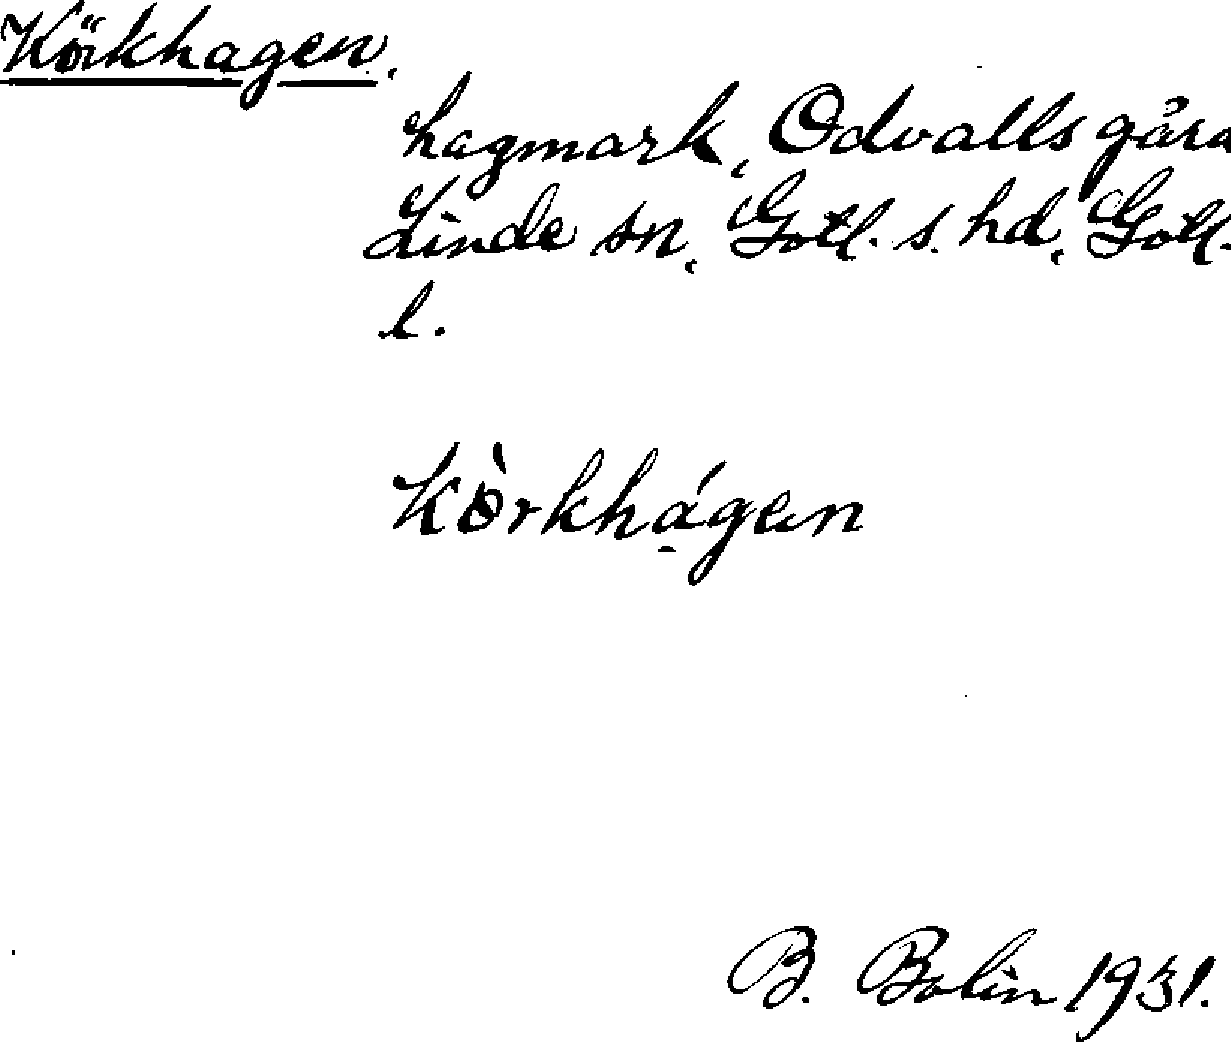 Körkhagen.
hagmark, Odvalls gård
Linde sn, Gotl. s. hd, Gotl.
l.
Kòrkhá̱gen
B. Bolin 1931.